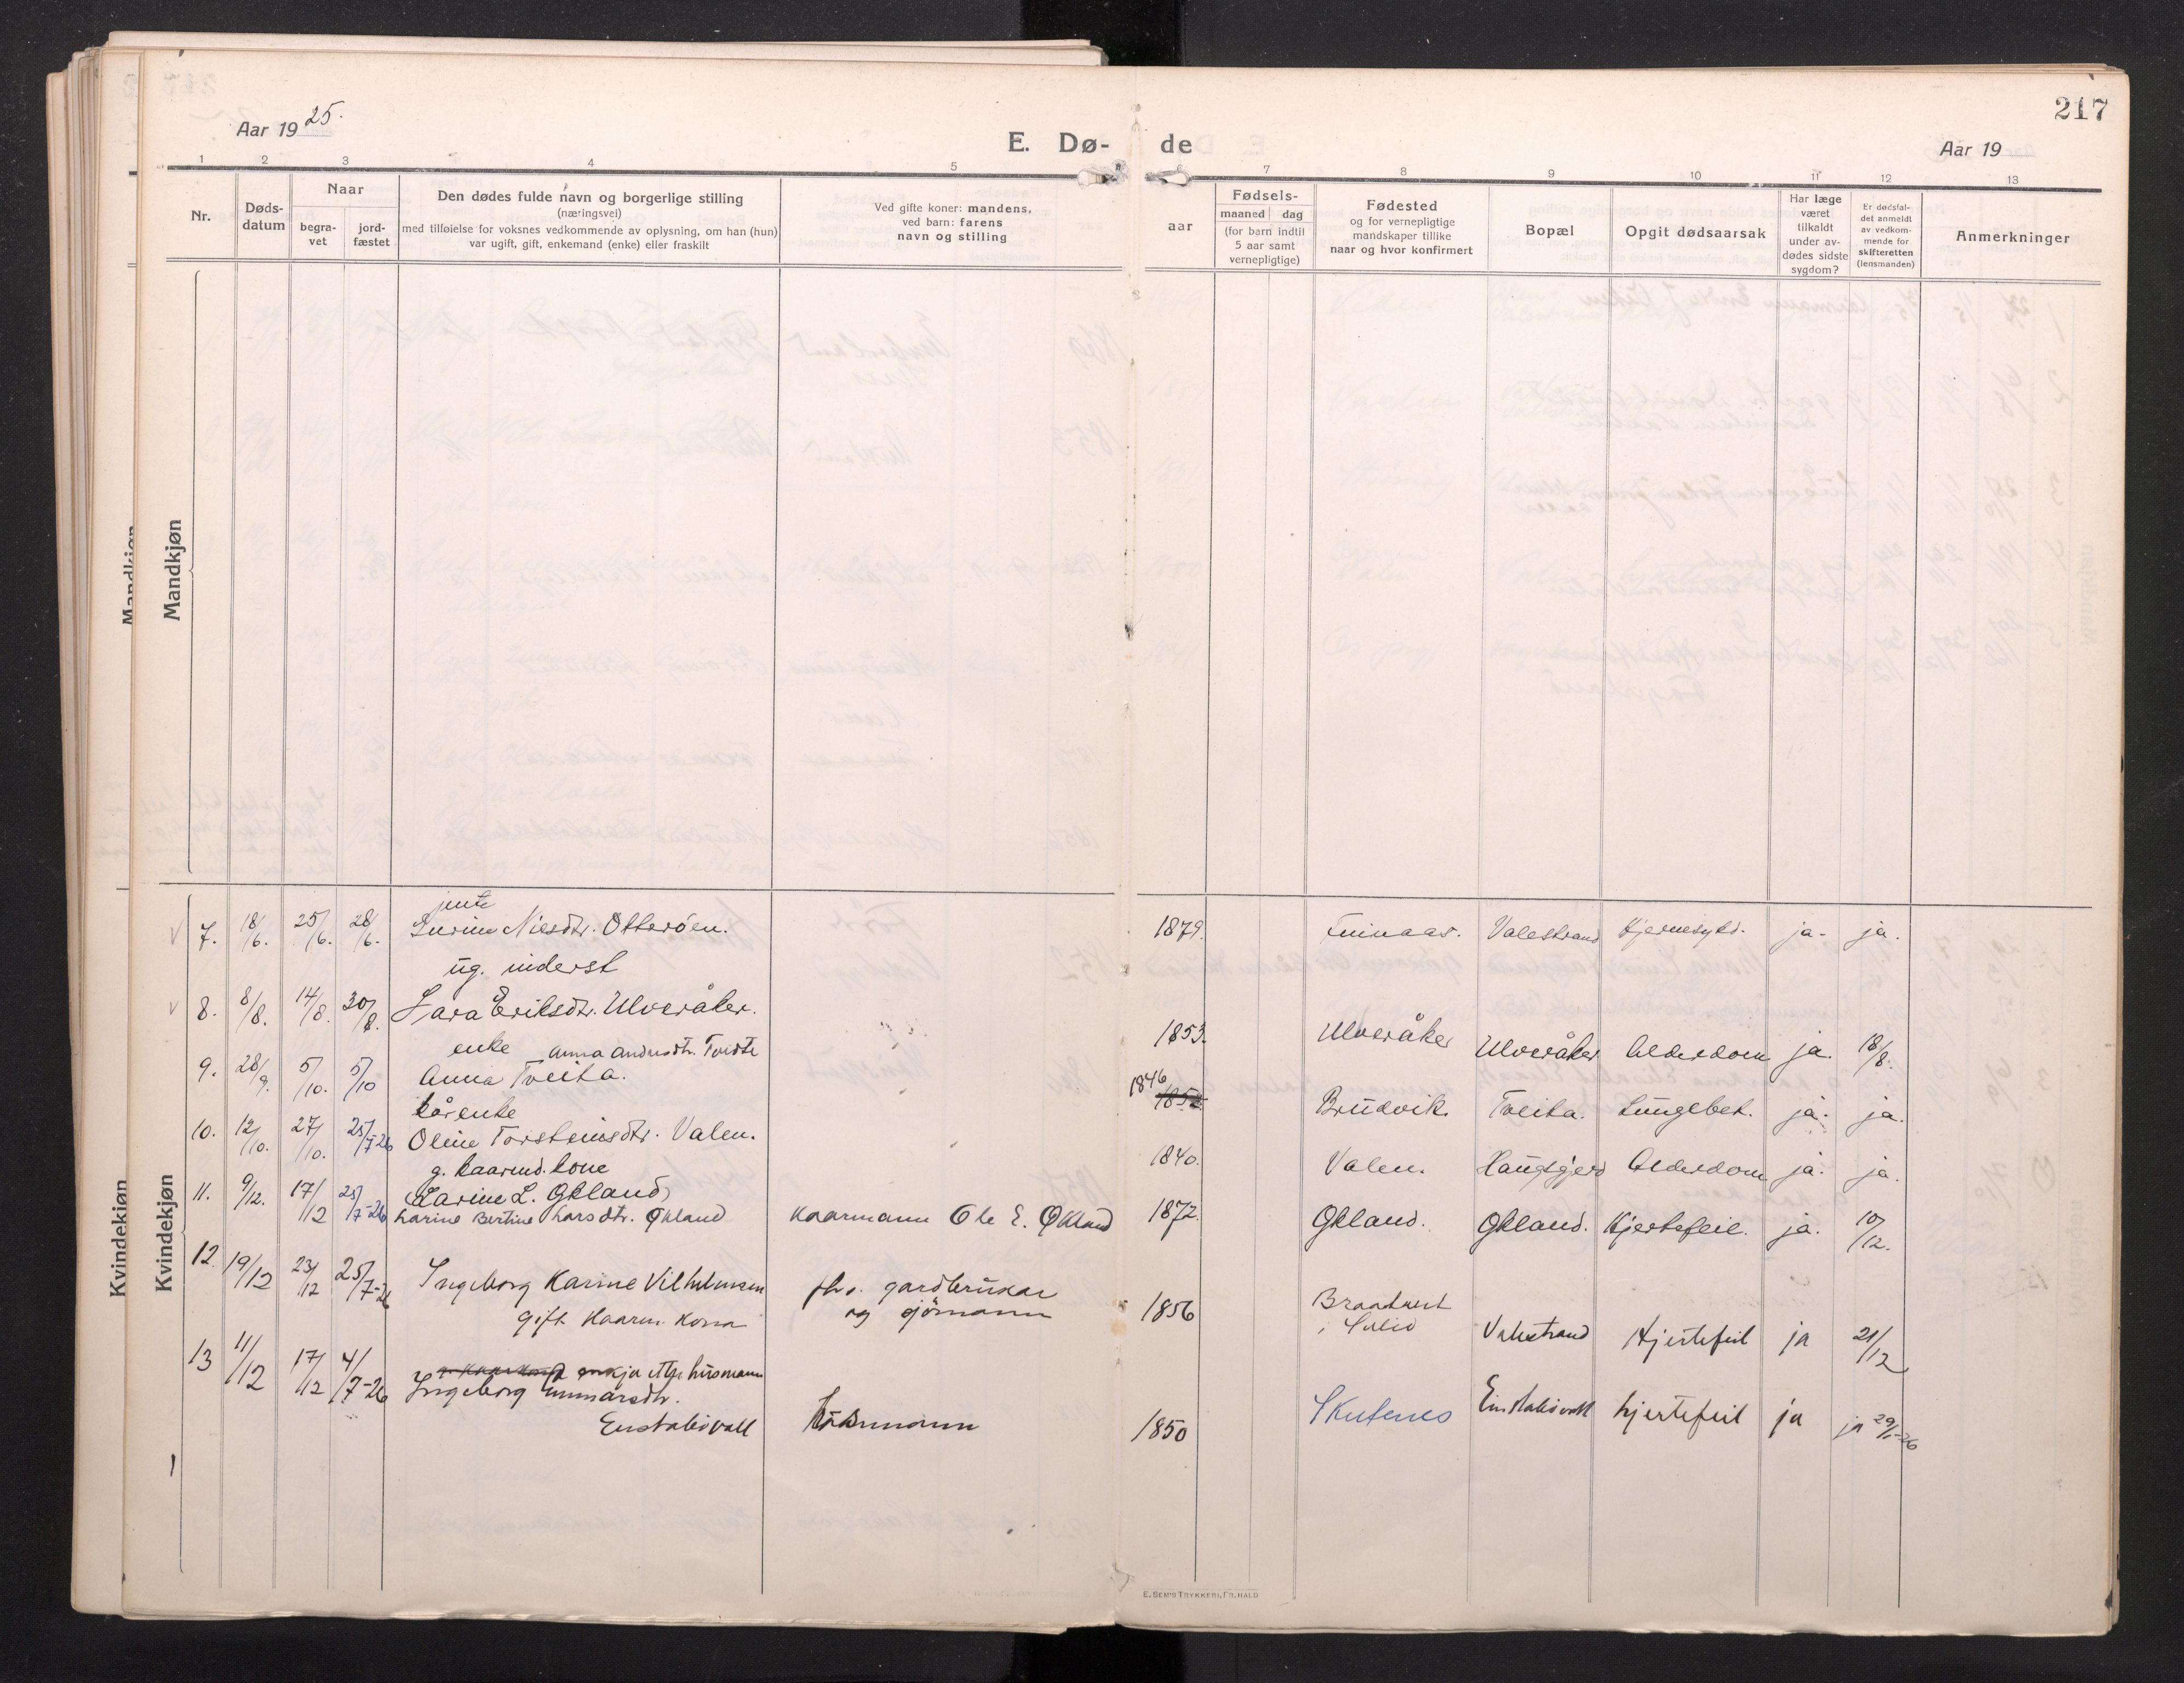 217
Aar 1925.
E. Dø-
de
Aar 19
1 2 3 4 5 6 7 8 9 10 11 12 13
Nr.
Døds-
datum
Naar
begra-
vet
jord-
fæstet
Den dødes fulde navn og borgerlige stilling
(næringsvei)
med tilføielse for voksnes vedkommende av oplysning, om han (hun)
var ugift, gift, enkemand (enke) eller fraskilt
Ved gifte koner: mandens,
ved barn: farens
navn og stilling
aar
Fødsels-
maaned dag
(for barn indtil
5 aar samt
vernepligtige)
Fødested
og for vernepligtige
mandskaper tillike
naar og hvor konfirmert
Bopæl
Opgit dødsaarsak
Har læge
været
tilkaldt
under av-
dødes sidste
sygdom?
Er dødsfal-
det anmeldt
av vedkom-
mende for
skifteretten
(lensmanden)
Anmerkninger
Mandkjøn
Mandkjøn
Kvindekjøn
Kvindekjøn
jente
7. 18/6. 25/6. 28/6. Nilsdtr. Otterøen. 1879. Finnaas. Valestrand ja. ja.
ug. inderst
8. 8/8. 14/8. 30/8. Lara Eriksdtr. Ulveråker. 1853. Ulveråker Ulveråker Alderdom ja. 18/8.
enke Anna Andersdtr. Tveite
9. 28/9. 5/10. 5/10 Anna Tveita. 1846 1852 Brudvik. Tveita. Lungebet. ja. ja.
kårenke
10. 12/10. 27/10. 25/7-26 Oline Torsteinsdtr. Valen. 1840. Valen. Haugsgjerd Alderdom ja. ja.
g. kaarmd. kone
11. 9/12. 17/12 25/7-26 Larine L. Økland
Larine Bertine Larsdtr. Økland Kaarmann Ole E. Økland 1872. Økland. Økland. Hjertefeil. ja. 10/12.
12. 19/12 23/12 25/7-26 Ingeborg Karine Vilhelmsen fhv. gardbrukar 1856 Braatveit
gift Kaarm. Kona og sjömann i Suled Valestrand Hjertefeil ja 21/12
13 11/12 17/12 4/7-26 enkja etter husmann
Ingeborg Gunnarsdtr.
Eustabøvall 1850 Skutenes Eustabøvall hjertefeil ja ja 29/1-26
E. Sem's Trykkeri, Fr.hald